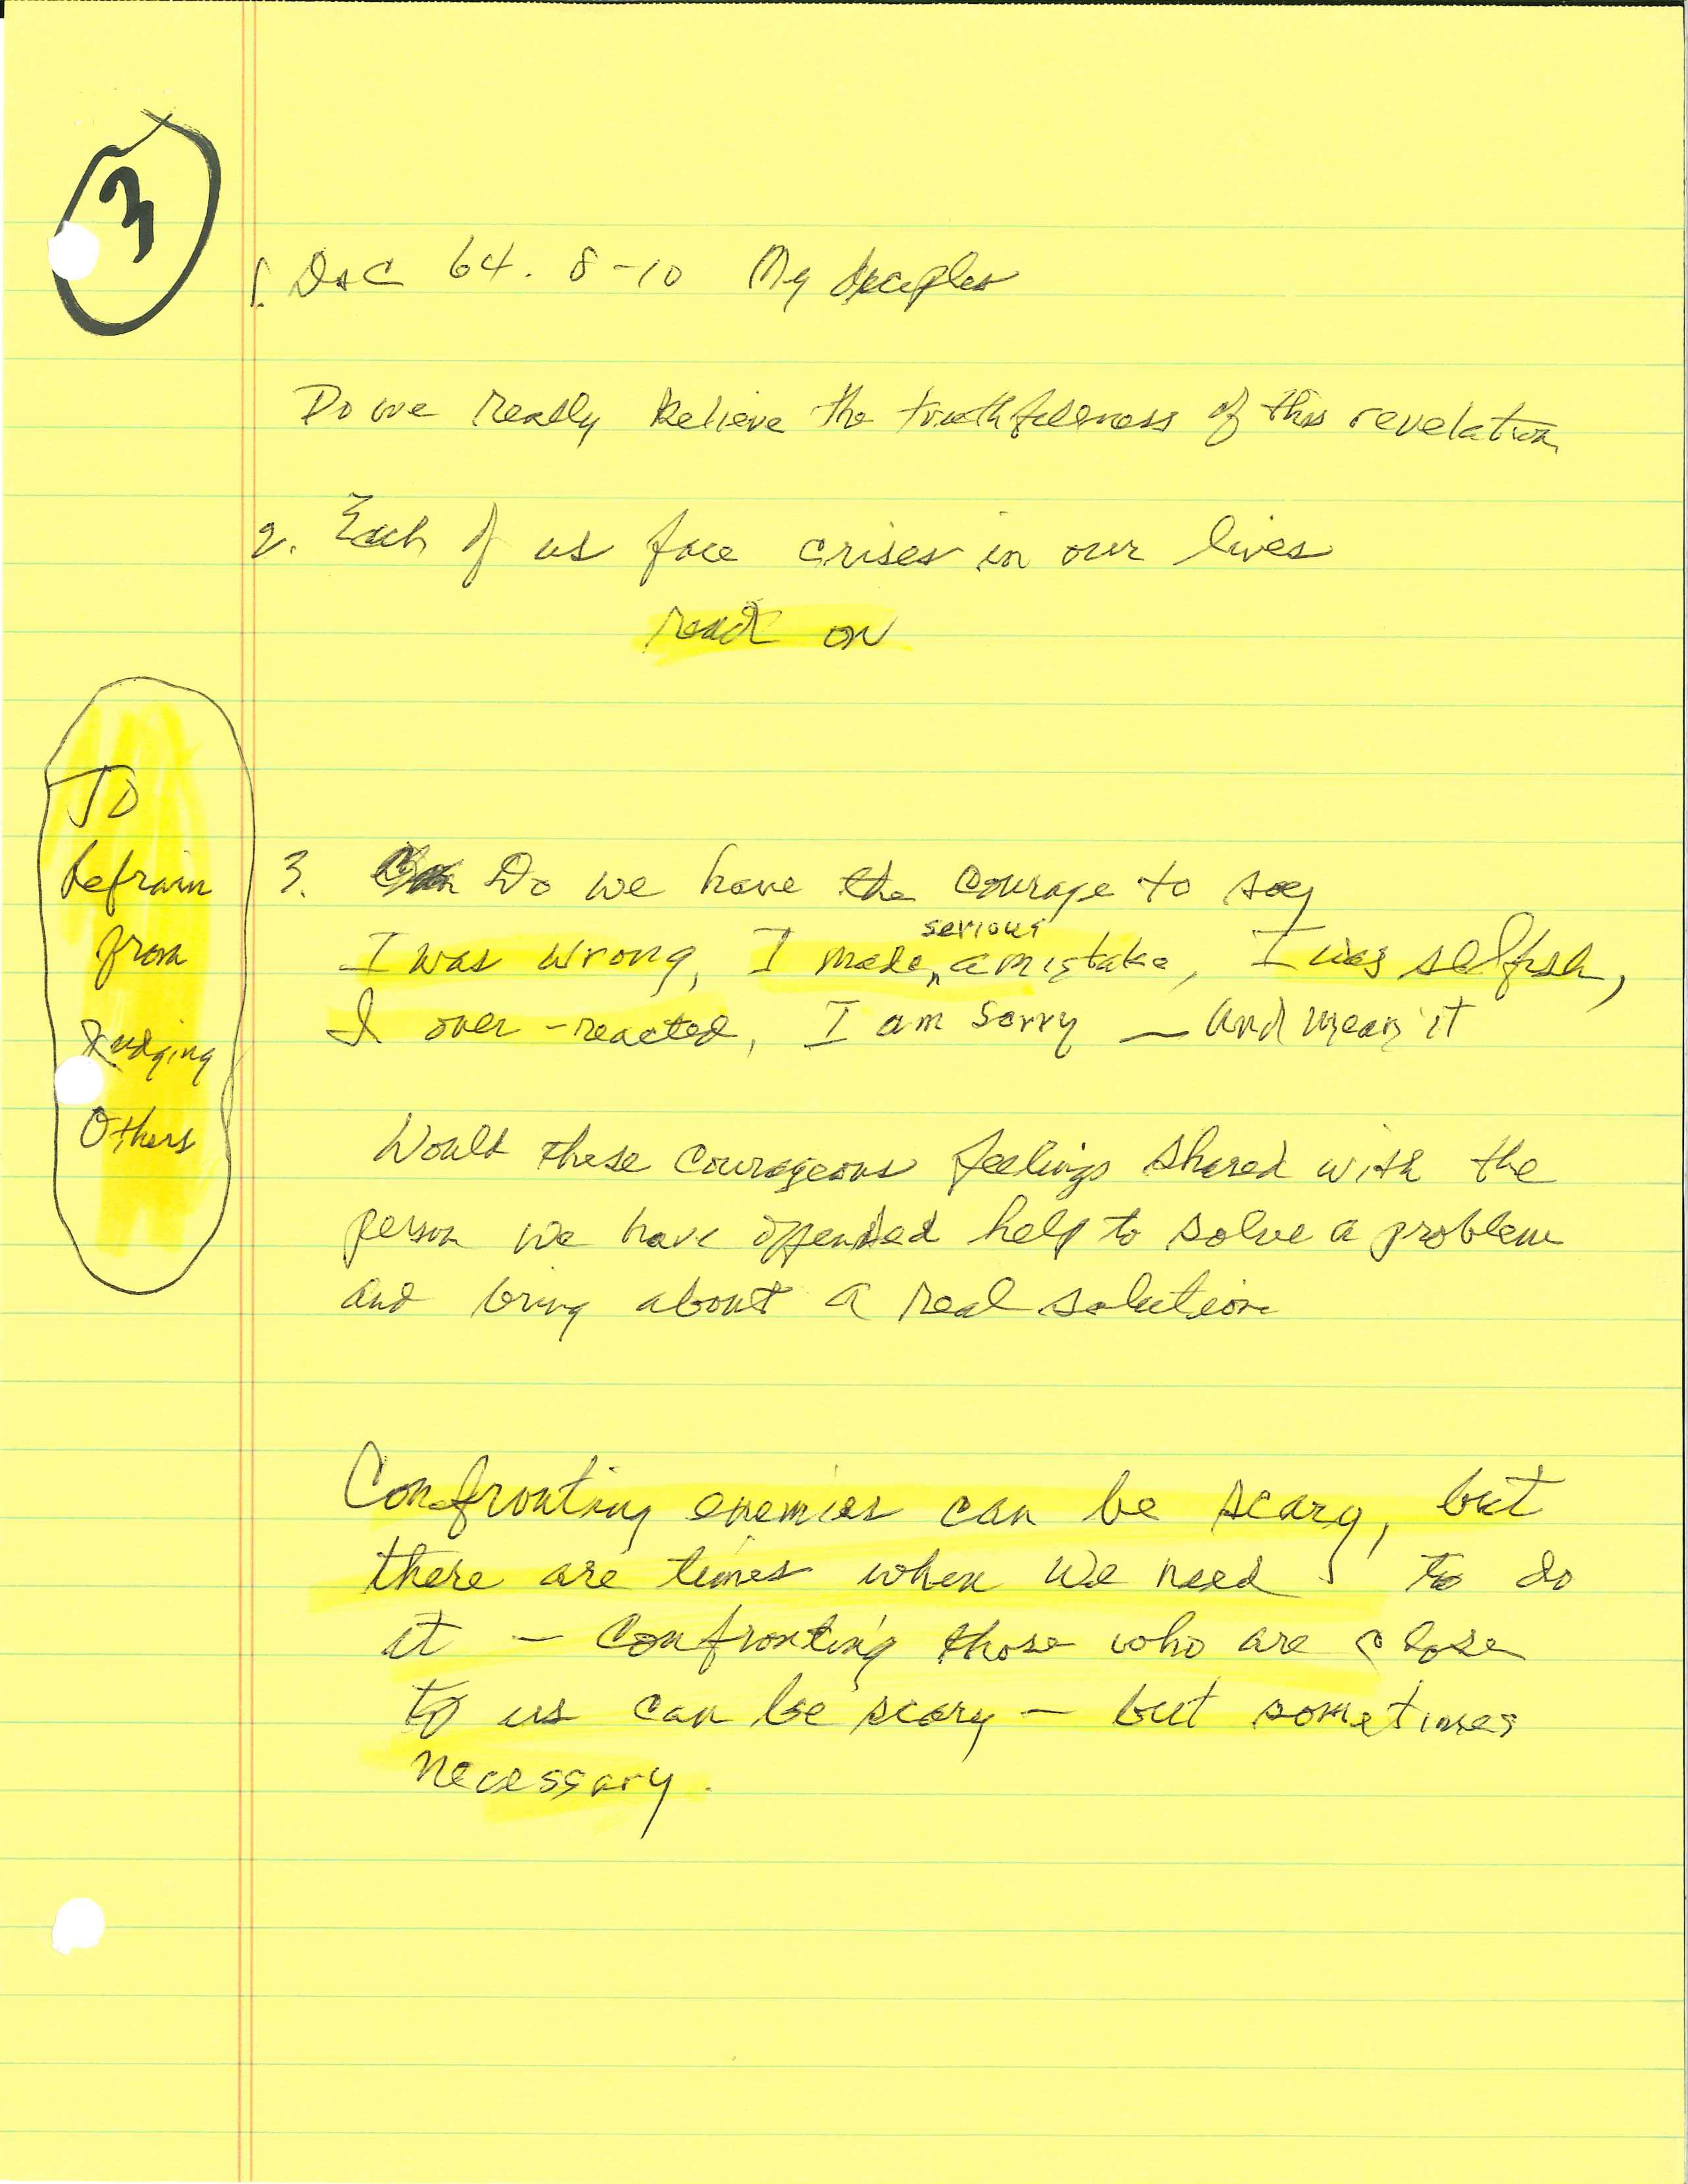 3
1. D&C 64. 8-10 My disciples
Do we really believe the truthfulness of this revelation
2. Each of us face crises in our lives
read on
To
Refrain
from
Judging
Others
3. Do we have the courage to say
serious
I was wrong, I made ^ a mistake, I was selfish,
I over-reacted, I am sorry — and mean it
Would these courageous feelings shared with the
person we have offended help to solve a problem
and bring about a real solution
Confronting enemies can be scary, but
there are times when we need to do
it - Confronting those who are close
to us can be scary - but sometimes
necessary.